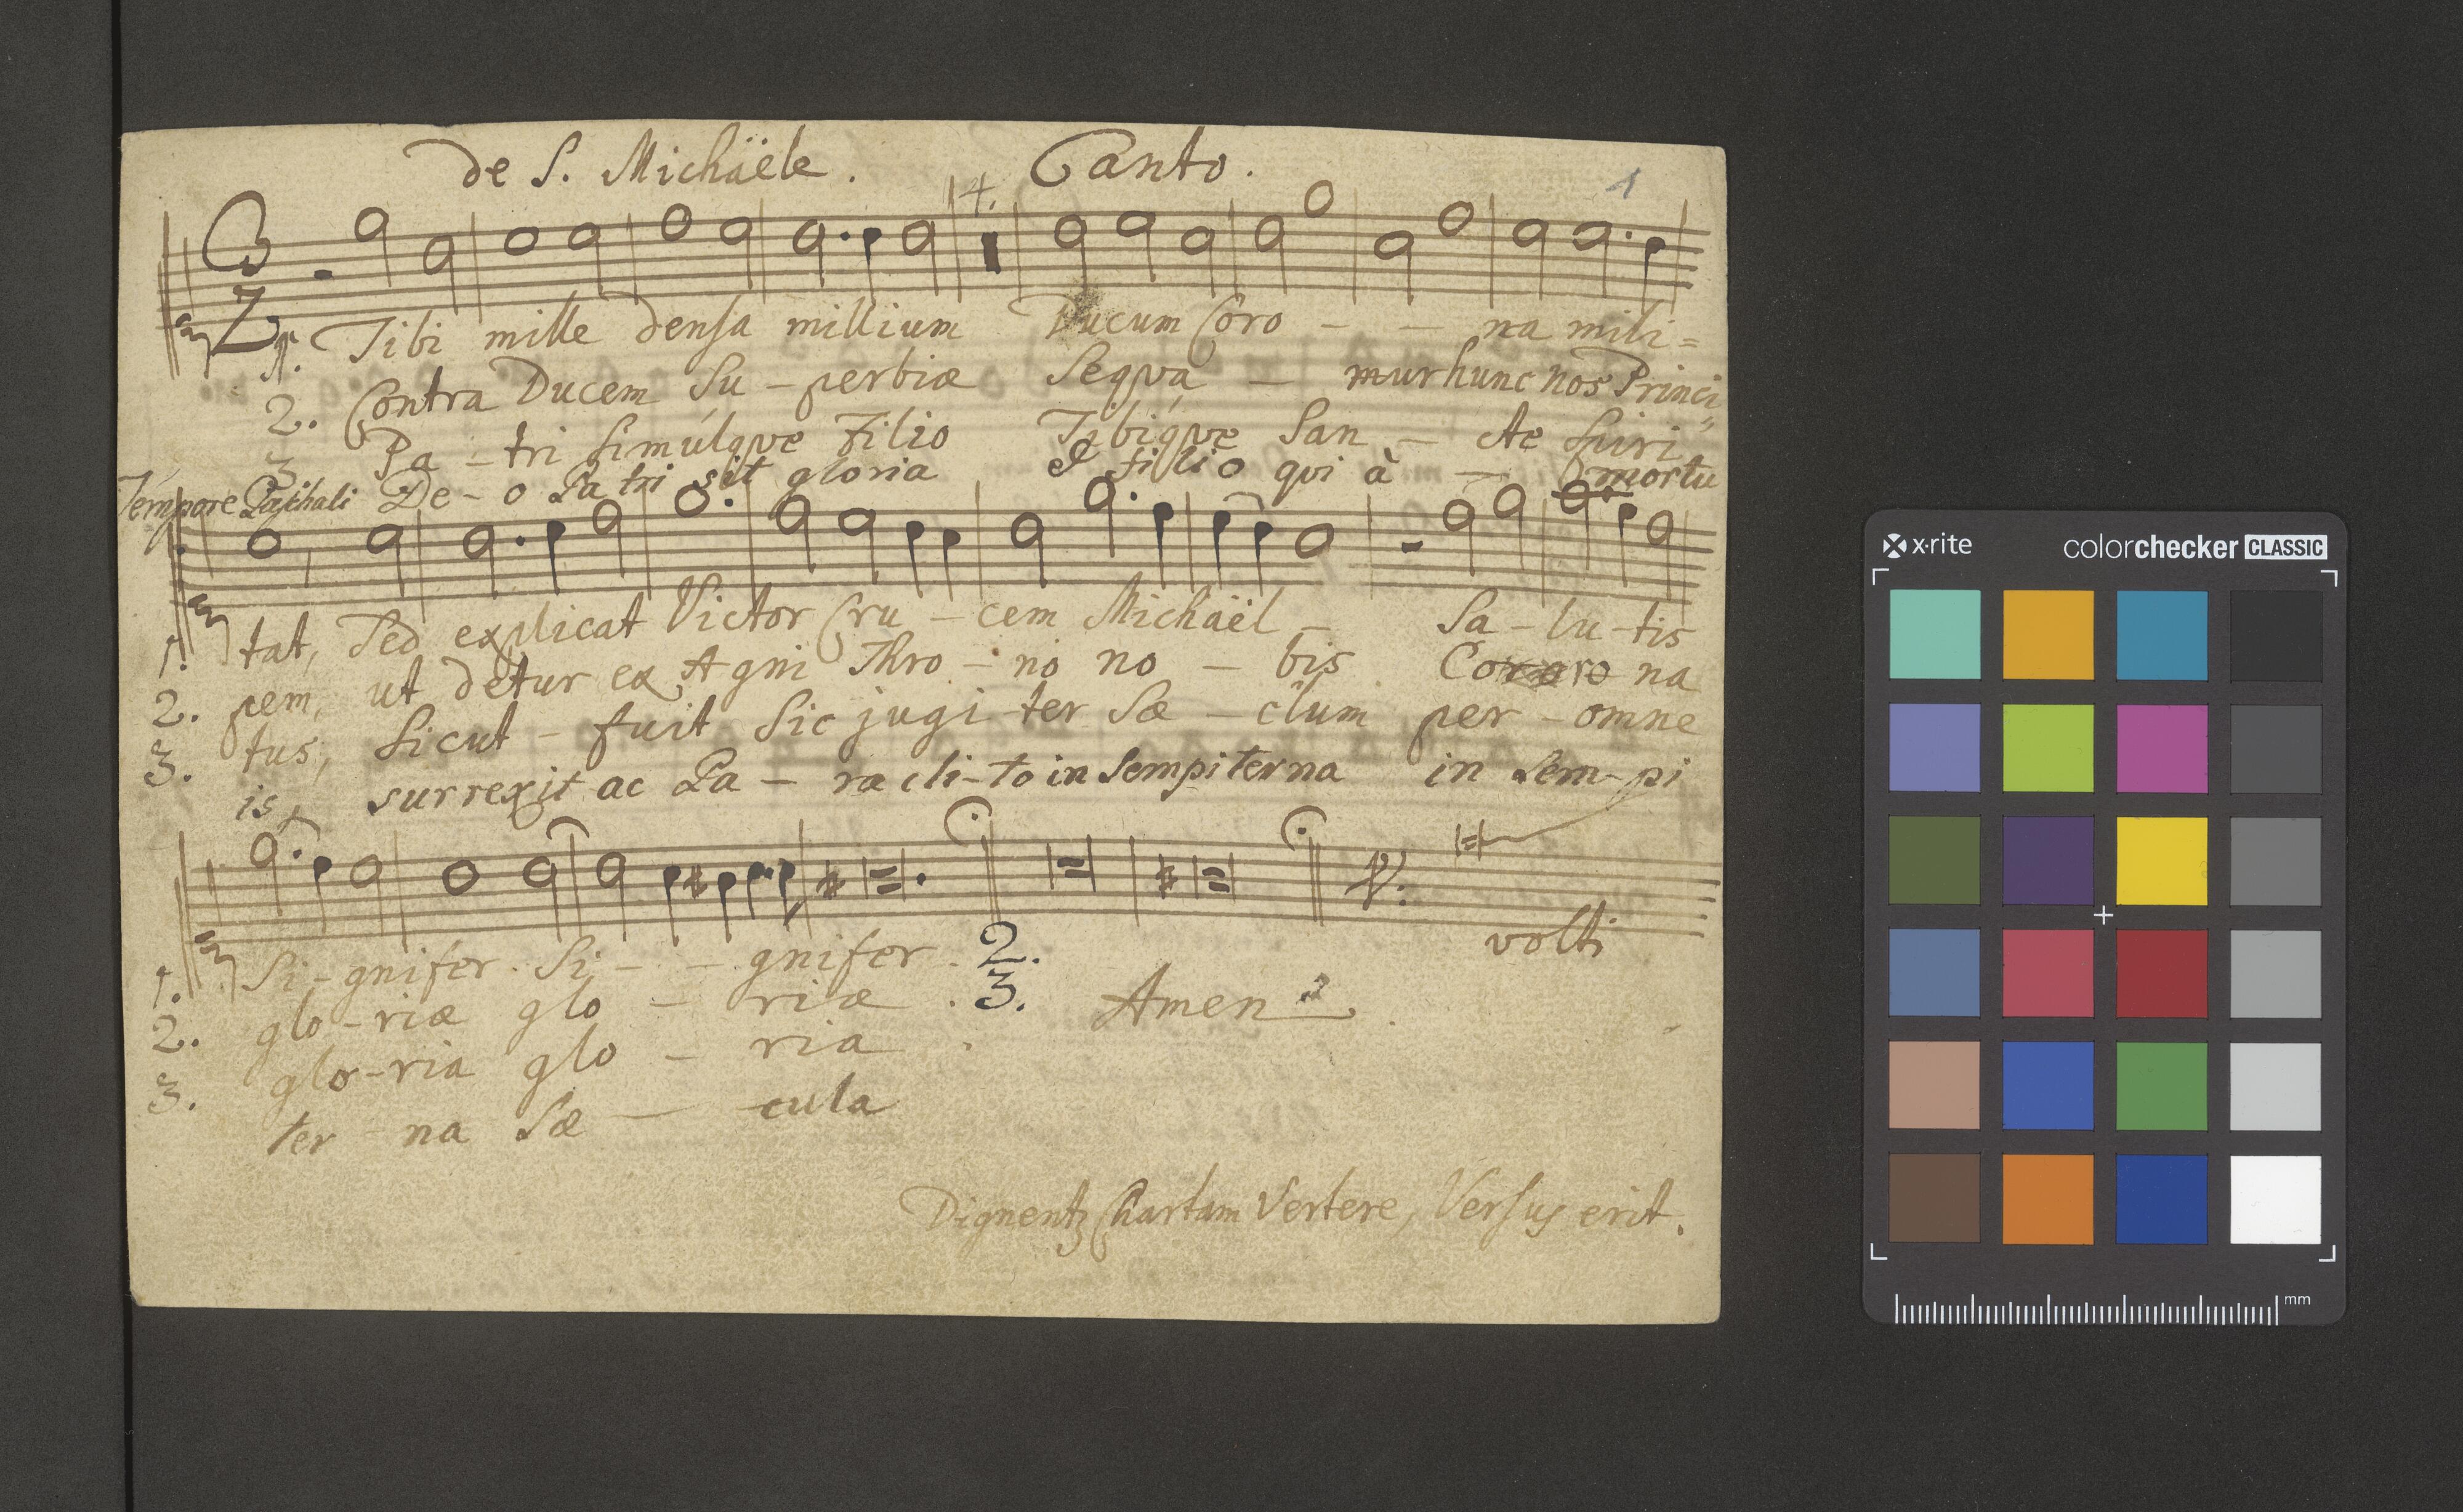 de S. Michäele. Canto. 1
4.
1. Tibi mille densa millium Ducum Coro - - na mili=
2. Contra Ducem Su - perbiæ Seqvá - mur hunc nos Princi=
3 Pa - tri simúlqve Filio Tibíqve San - cte Spiri=
Tempore Paschali De - o Patri sit gloria & filio qui à - mortu
1. tat, Sed explicat Victor Cru - cem Michaël - Sa - lu - tis
2. pem, ut detur ex Agni Thro - no no - bis Coro na
3. tus, sicut - fuit Sic jugi - ter Sæ - clum per - omne
is, surrexit ac Pa - racli - to in Sempiterna in Sem - pi
V. volti
1. Si - gnifer. Si - - gnifer. 2.
2. glo - riæ glo - riæ. 3. Amen
3. glo - ria glo - ria.
ter - na Sæ - cula
Dignentz Chartam Vertere, Versus erit.
x·rite colorchecker CLASSIC
mm